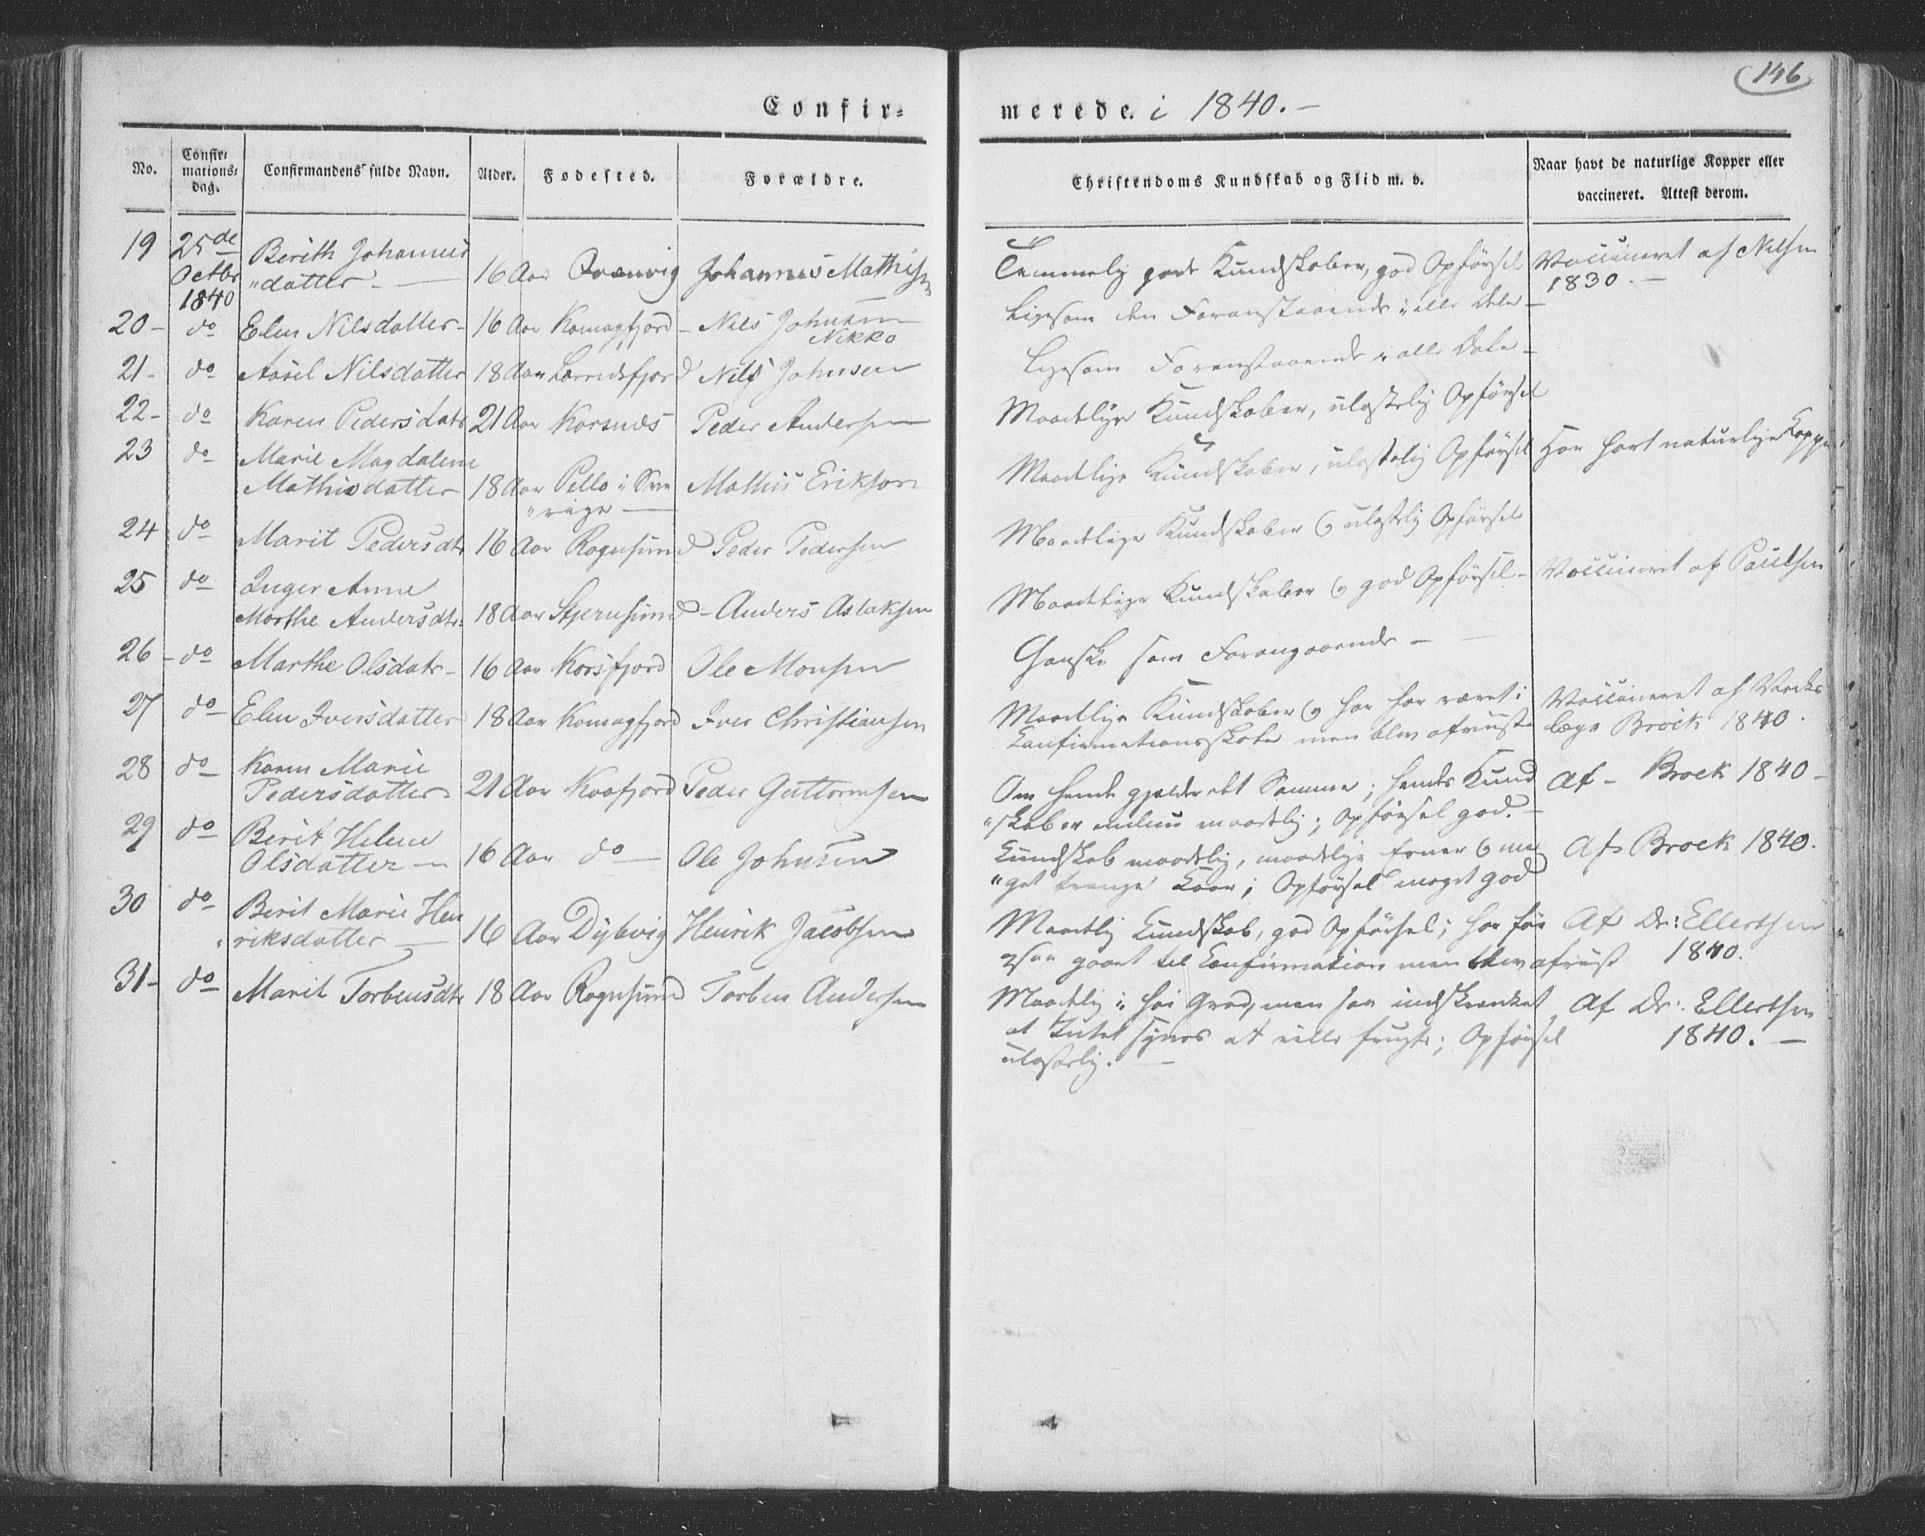 146
Confir-
merede. i 1840. -
No.
Confir-
mations-
dag.
Confirmandens fulde Navn.
Alder.
Fødested.
Forældre.
Christendoms Kundskab og Flid m. v.
Naar havt de naturlige Kopper eller
vaccineret. Attest derom.
19 25de Berith Johannis
Octbr "datter - 16 Aar Johannes Mathis
1840
Temmelig gode Kundskaber, god Opførsel Vaccineret af Nilsen
1830. -
20 - do Elen Nilsdatter - 16 Aar Komagfjord - Nils Johnsen
Nikko
Ligesom den Foranstaaende i alle Dele -
21 - do Aasel Nilsdatter 18 Aar Nils Johnsen
Ligesom Foranstaaende i alle Dele -
22 - do Karen Pedersdatr 21 Aar Korsnæs Peder Andersen
Maadelige Kundskaber, ulastelig Opførsel
23 do Marie Magdalene
Mathisdatter - 18 Aar Pello i Sve Mathis Erikson
"rige -
Maadelige Kundskaber, ulastelig Opførsel Har havt naturlige Kopper
24 - do Marit Pedersdtr 16 Aar Rognsund Peder Pedersen
Maadelige Kundskaber og ulastelig Opførsel
25 do Inger Anne
Marthe Andersdtr. 18 Aar Stjernsund - Anders Aslaksen
Maadelige Kundskaber og god Opførsel - Vaccineret af Paulsen
26 - do Marthe Olsdatr - 16 Aar Korsfjord Ole Monsen
Ganske som Foregaaende -
27 do Elen Iversdatter 18 Aar Komagfjord Iver Christiansen
Maadelige Kundskaber og har før været i Vaccineret af Værks
Confirmationsskole men blev afviist læge Brock 1840.
28 do Karen Marie
Pedersdatter 21 Aar Kaafjord Peder Guttormsen
Om hende gjælder det Samme; hendes Kund Af - Brock 1840 -
"skaber maadelig; Opførsel god. -
29 do Berit Helene
Olsdatter - 16 Aar do - Ole Johnsen
Kundskab maadelig, maadelige Evner og me Af Brock 1840.
"get trange Kaar; Opførsel meget god
30 do Berit Marie Hen
riksdatter - 16 Aar Dybvig Henrik Jacobsen
Maadelig Kundskab, god Opførsel; har før Af Dr: Ellertsen
gaaet til Confirmation men blev afviist 1840.
31 - do Marit Torbensdtr 18 Aar Rognsund Torben Andersen
Maadelig i høi Grad, men saa indskrænket Af Dr: Ellertsen
at Intet synes at ville frugte; Opførsel 1840. -
ulastelig. -